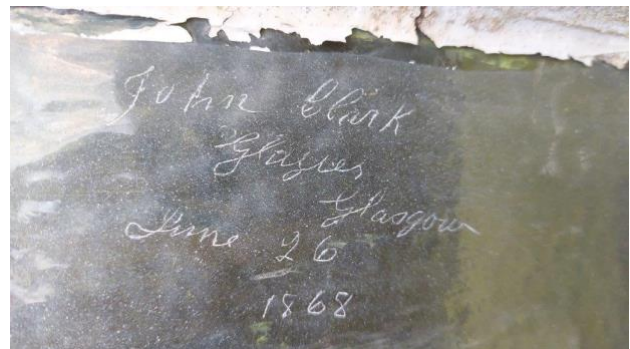 John Clark
Glazier
Glasgow
June 26
1868